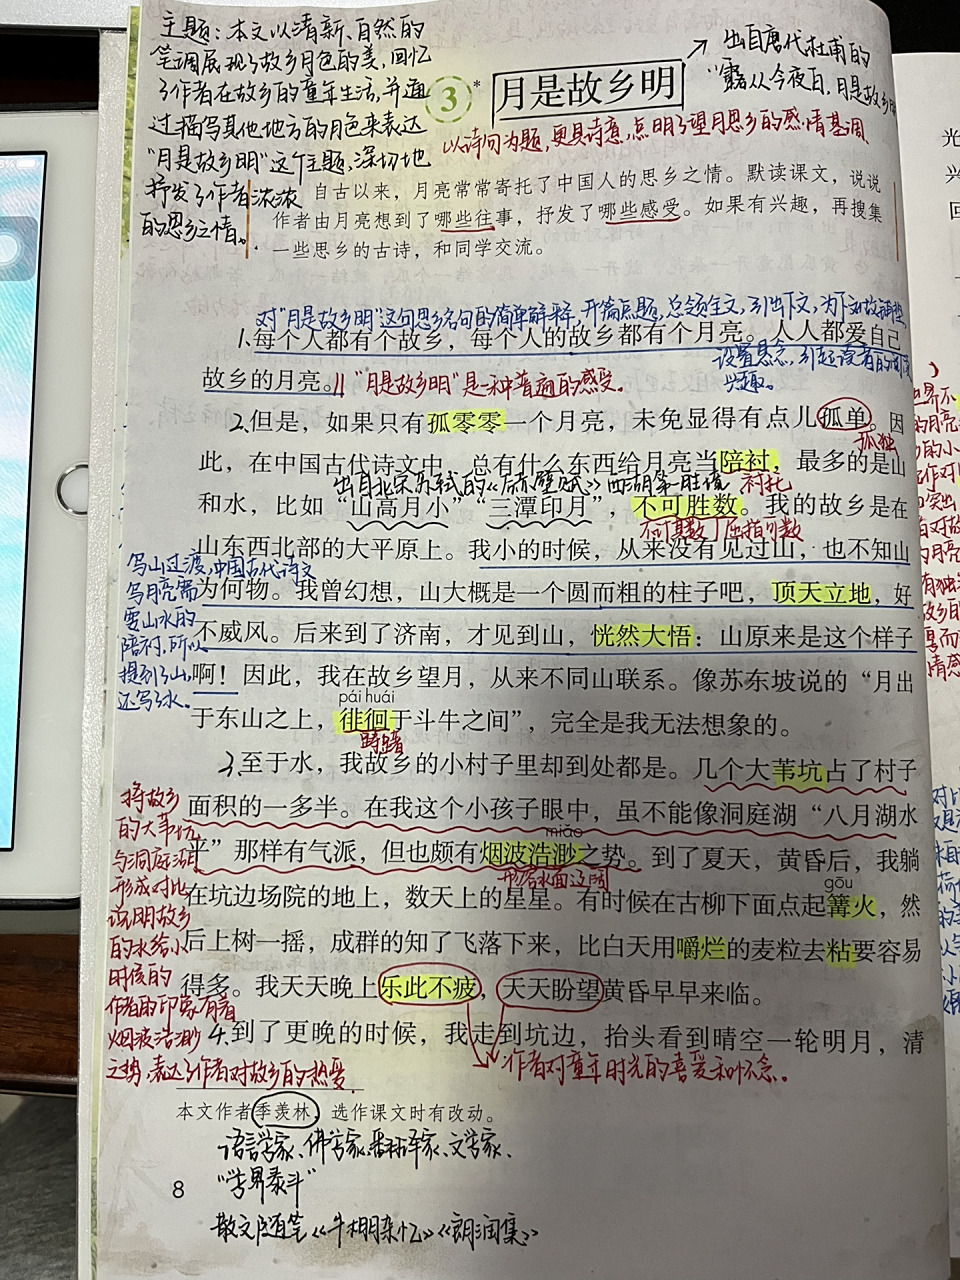 主题：本文以清新、自然的
笔调展现了故乡月色的美，回忆
了作者在故乡的童年生活，并通
过描写其他地方的月色来表达
"月是故乡明"这个主题，深切地
抒发了作者浓浓
的思乡之情。
出自唐代杜甫的
"露从今夜白，月是故乡明
3* 月是故乡明
以诗句为题，更具诗意，点明了望月思乡的感情基调
自古以来，月亮常常寄托了中国人的思乡之情。默读课文，说说
作者由月亮想到了哪些往事，抒发了哪些感受。如果有兴趣，再搜集
一些思乡的古诗，和同学交流。
对"月是故乡明"这句思乡名句的简单解释，开篇点题，总领全文，引出下文，为下文做铺垫
1.每个人都有个故乡，每个人的故乡都有个月亮。人人都爱自己
设置悬念，引起读者的阅读
兴趣。
故乡的月亮。 "月是故乡明"是一种普遍的感受。
2.但是，如果只有孤零零一个月亮，未免显得有点儿孤单。因
孤独
此，在中国古代诗文中，总有什么东西给月亮当陪衬，最多的是山
出自北宋苏轼的《后赤壁赋》 西湖第一胜境 衬托
和水，比如"山高月小""三潭印月"，不可胜数。我的故乡是在
不计其数 屈指可数
山东西北部的大平原上。我小的时候，从来没有见过山，也不知山
为何物。我曾幻想，山大概是一个圆而粗的柱子吧，顶天立地，好
不威风。后来到了济南，才见到山，恍然大悟：山原来是这个样子
啊！因此，我在故乡望月，从来不同山联系。像苏东坡说的"月出
pái huái
于东山之上，徘徊于斗牛之间"，完全是我无法想象的。
踌躇
写山过渡，中国古代诗文
写月亮需
要山水的
陪衬，所以
提到了山，
还写了水。
3.至于水，我故乡的小村子里却到处都是。几个大苇坑占了村子
面积的一多半。在我这个小孩子眼中，虽不能像洞庭湖"八月湖水
miǎo
平"那样有气派，但也颇有烟波浩渺之势。到了夏天，黄昏后，我躺
形容水面辽阔
gōu
在坑边场院的地上，数天上的星星。有时候在古柳下面点起篝火，然
后上树一摇，成群的知了飞落下来，比白天用嚼烂的麦粒去粘要容易
得多。我天天晚上乐此不疲，天天盼望黄昏早早来临。
4.到了更晚的时候，我走到坑边，抬头看到晴空一轮明月，清
作者对童年时光的喜爱和怀念。
将故乡
的大苇坑
与洞庭湖
形成对比
说明故乡
的水给小
时候的
作者的印象有着
烟波浩渺
之势，表达了作者对故乡的热爱
本文作者季羡林，选作课文时有改动。
语言学家、佛学家、翻译家、文学家、
"学界泰斗"
散文随笔《牛棚杂忆》《朗润集》
8